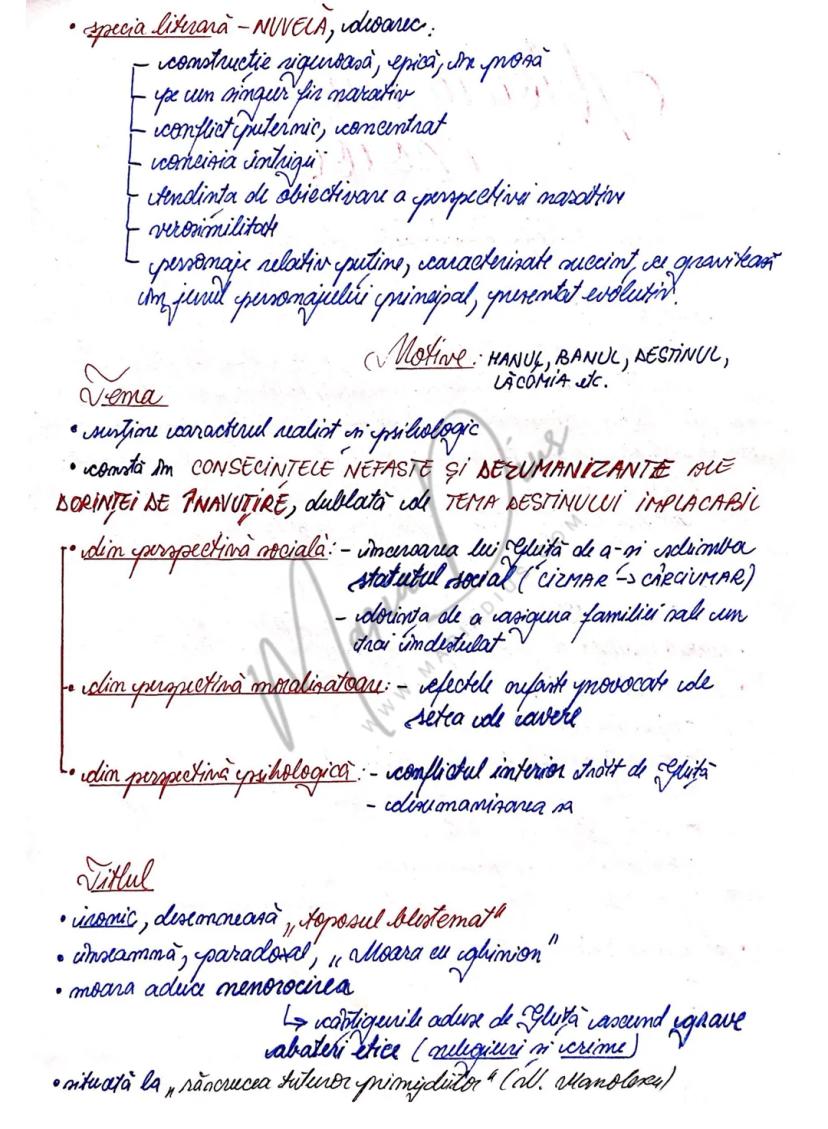 • specia literară – NUVELĂ, deoarece:
– construcție riguroasă, epică, în proză
– pe un singur fir narativ
– conflict puternic, concentrat
– concizia intrigii
– tendința de obiectivare a perspectivei narative
– verosimilitate
– personaje relativ puține, caracterizate succint, ce gravitează
în jurul personajului principal, prezentat evolutiv.
Motive: HANUL, BANUL, DESTINUL,
LĂCOMIA etc.
Tema
• susține caracterul realist și psihologic
• constă în CONSECINȚELE NEFASTE ȘI DEZUMANIZANTE ALE
DORINȚEI DE ÎNAVUȚIRE, dublată de TEMA DESTINULUI IMPLACABIL
• din perspectivă socială: – încercarea lui Ghiță de a-și schimba
statutul social (CIZMAR -> CÂRCIUMAR)
– dorința de a asigura familiei sale un
trai îndestulat
• din perspectivă moralizatoare: – efectele nefaste provocate de
setea de avere
• din perspectivă psihologică: – conflictul interior trăit de Ghiță
– dezumanizarea sa
Titlul
• ironic, desemnează „toposul blestemat"
• înseamnă, paradoxal, „Moara cu ghinion"
• moara aduce nenorocirea
↳ câștigurile aduse de Ghiță ascund grave
abateri etice (nelegiuiri și crime)
• situată la „răscrucea tuturor primejdiilor" (N. Manolescu)
Maria Dius
WWW.MARIADIUS.COM